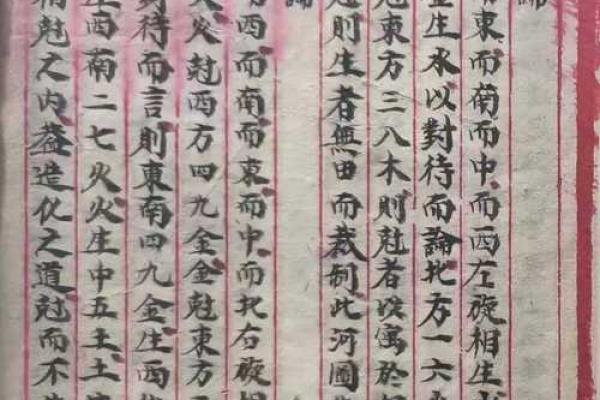 論
東而南而中而西左旋相生
金生水以對待而論北方一六
尅東方三八木則尅者以寓於
尅則生者無田而裁制此河圖
論
西而南而東而中而北右旋相
火火尅西方四九金金尅東方
對待而言則東南四九金生西
生西南二七火火生中五土土
相尅之內葢造化之道尅而不